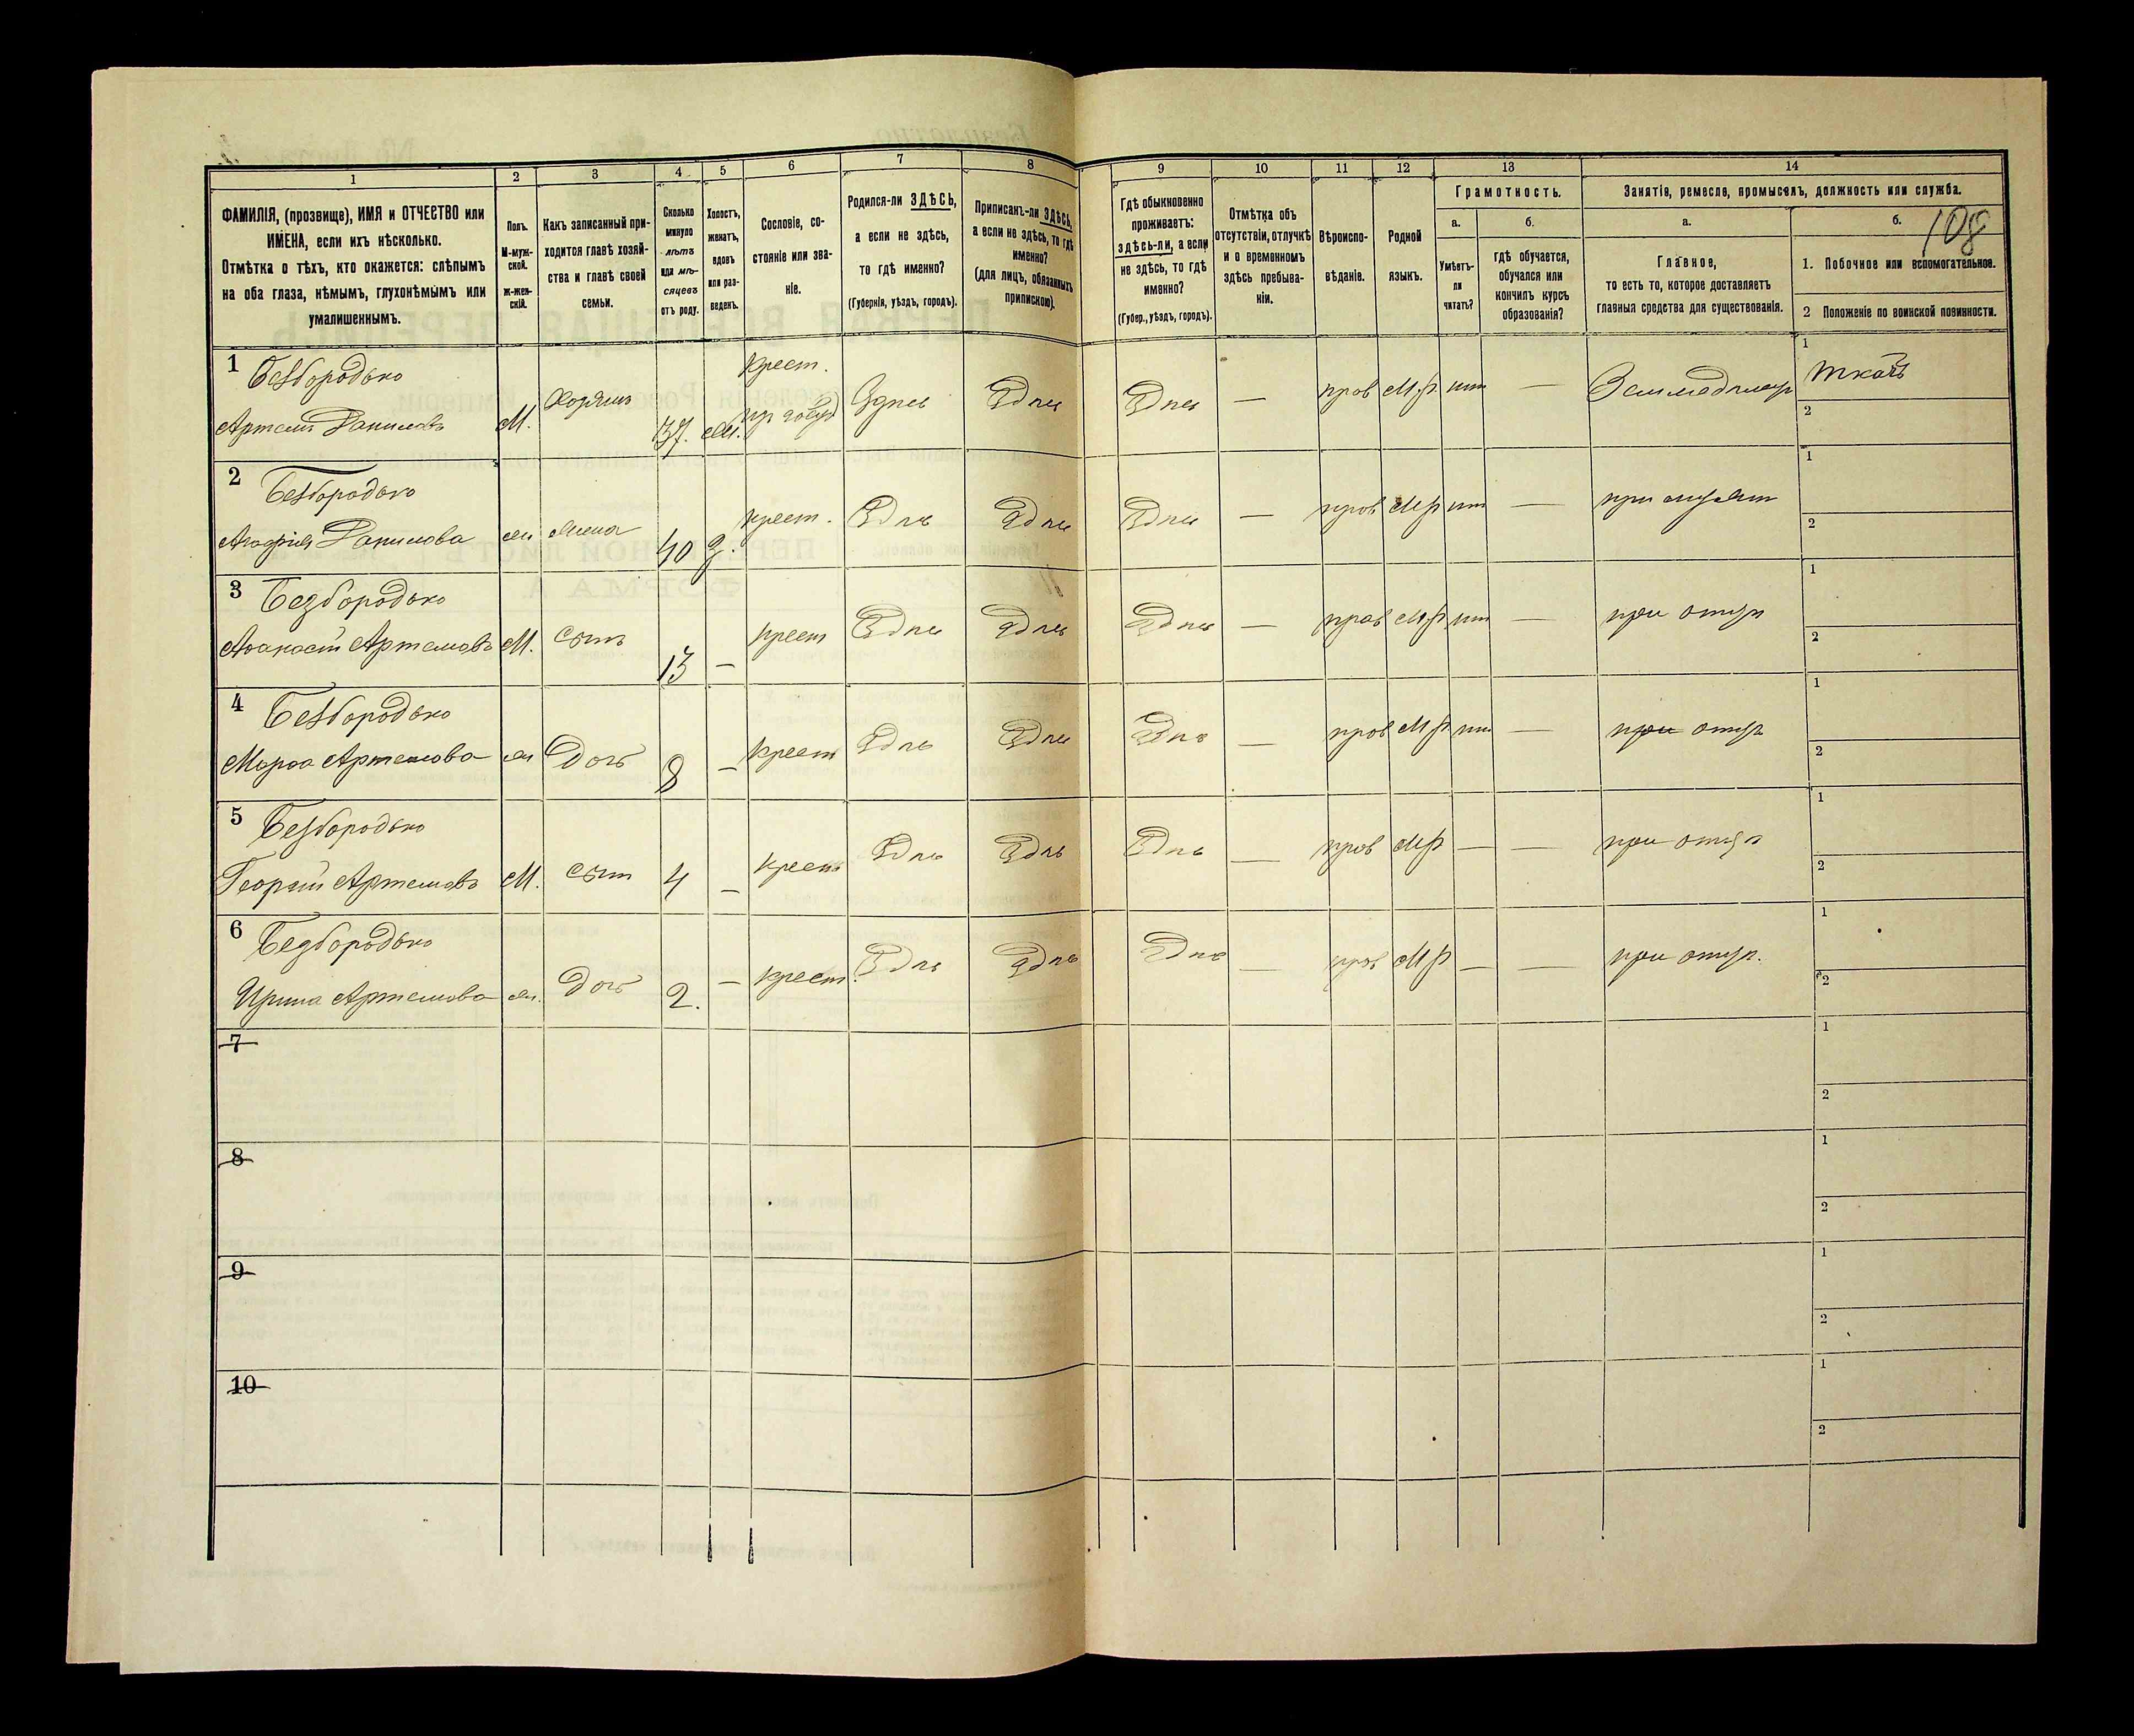 108
1 2 3 4 5 6 7 8 9 10 11 12 13 14
ФАМИЛІЯ, (прозвище), ИМЯ и ОТЧЕСТВО или
ИМЕНА, если ихъ нѣсколько.
Отмѣтка о тѣхъ, кто окажется: слѣпымъ
на оба глаза, нѣмымъ, глухонѣмымъ или
умалишеннымъ.
Полъ.
М-муж-
ской.
ж-жен-
скій.
Какъ записанный при-
ходится главѣ хозяй-
ства и главѣ своей
семьи.
Сколько
минуло
лѣтъ
или мѣ-
сяцевъ
отъ роду.
Холостъ,
женатъ,
вдовъ
или раз-
веденъ.
Сословіе, со-
стояніе или зва-
ніе.
Родился-ли ЗДѢСЬ,
а если не здѣсь,
то гдѣ именно?
(Губернія, уѣздъ, городъ).
Приписанъ-ли ЗДѢСЬ,
а если не здѣсь, то гдѣ
именно?
(для лицъ, обязанныхъ
припискою).
Гдѣ обыкновенно
проживаетъ:
здѣсь-ли, а если
не здѣсь, то гдѣ
именно?
(Губер., уѣздъ, городъ).
Отмѣтка объ
отсутствіи, отлучкѣ
и о временномъ
здѣсь пребыва-
ніи.
Вѣроиспо-
вѣданіе.
Родной
языкъ.
Грамотность.
а.
Умѣетъ-
ли
читать?
б.
гдѣ обучается,
обучался или
кончилъ курсъ
образованія?
Занятіе, ремесло, промыселъ, должность или служба.
а.
Главное,
то есть то, которое доставляетъ
главныя средства для существованія.
б.
1. Побочное или вспомогательное.
2 Положеніе по воинской повинности.
1 Безбородько крест. 1 ткачъ
М. 37. Здесь Здесь Здесь — пров — 2
2 Безбородько 1
Данилова 40 крест. Здесь Здесь Здесь — пров — 2
3 Безбородько 1
Артемовъ М. сынъ 13 — крест Здесь Здесь Здесь — прав — при отцѣ 2
4 Безбородько 1
Артемова Дочь 8 — крест Здесь Здесь Здесь — пров — при отцѣ 2
5 Безбородько 1
Георгій Артемовъ М. сынъ 4 — крест Здесь Здесь Здесь — пров — — при отцѣ 2
6 Безбородько 1
Ирина Артемова Дочь 2. — крест. Здесь Здесь Здесь — пров — — при отцѣ. 2
7 1
2
8 1
2
9 1
2
10 1
2